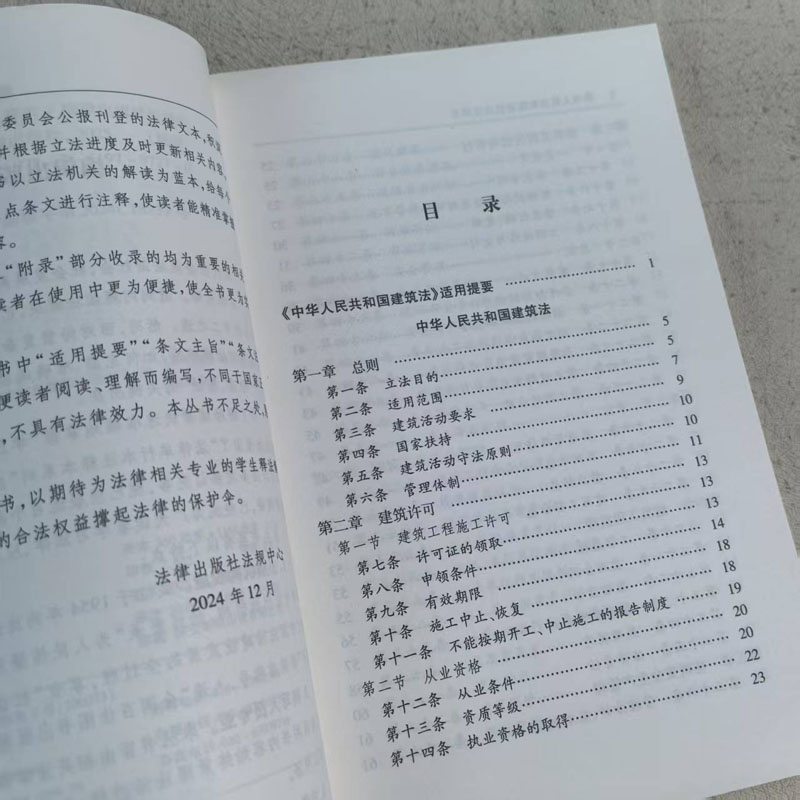 委员会公报刊登的法律文本,
并根据立法进度及时更新相关内容
以立法机关的解读为蓝本,给每个
点条文进行注释,使读者能精准掌握
容。
“附录”部分收录的均为重要的相关
读者在使用中更为便捷,使全书更为
书中“适用提要”“条文主旨”“条文
便读者阅读、理解而编写,不同于国家
,不具有法律效力。本丛书不足之处,
书,以期待为法律相关专业的学生释法
的合法权益撑起法律的保护伞。
法律出版社法规中心
2024年12月
目 录
《中华人民共和国建筑法》适用提要 …… 1
中华人民共和国建筑法
第一章 总则 …… 5
第一条 立法目的 …… 5
第二条 适用范围 …… 7
第三条 建筑活动要求 …… 9
第四条 国家扶持 …… 10
第五条 建筑活动守法原则 …… 10
第六条 管理体制 …… 11
第二章 建筑许可 …… 13
第一节 建筑工程施工许可 …… 13
第七条 许可证的领取 …… 13
第八条 申领条件 …… 14
第九条 有效期限 …… 18
第十条 施工中止、恢复 …… 18
第十一条 不能按期开工、中止施工的报告制度 …… 19
第二节 从业资格 …… 20
第十二条 从业条件 …… 20
第十三条 资质等级 …… 22
第十四条 执业资格的取得 …… 23